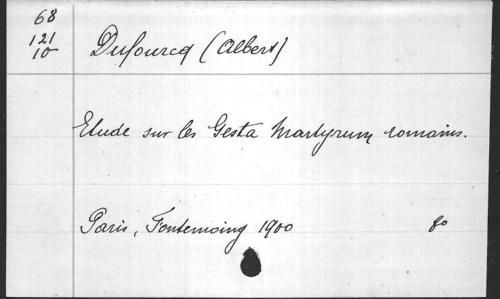 68
121
10
Dufourcq (Albert)
Etude sur les Gesta Martyrum romains.
Paris, Fontemoing 1900